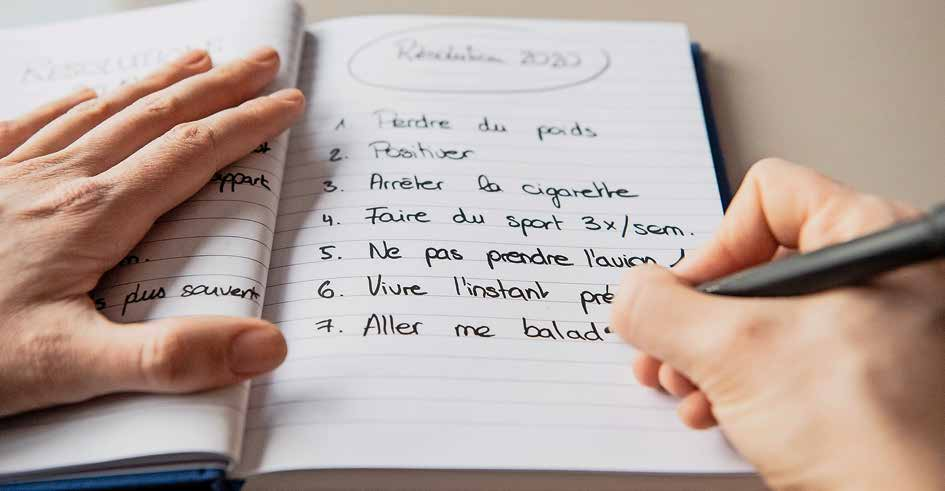 RESOLUTIONS
plus souvent
Résolution 2020
1 Perdre du poids
2. Positiver
3. Arrêter la cigarette
4. Faire du sport 3x/sem.
5. Ne pas prendre l'avion
6. Vivre l'instant pré
7. Aller me balad